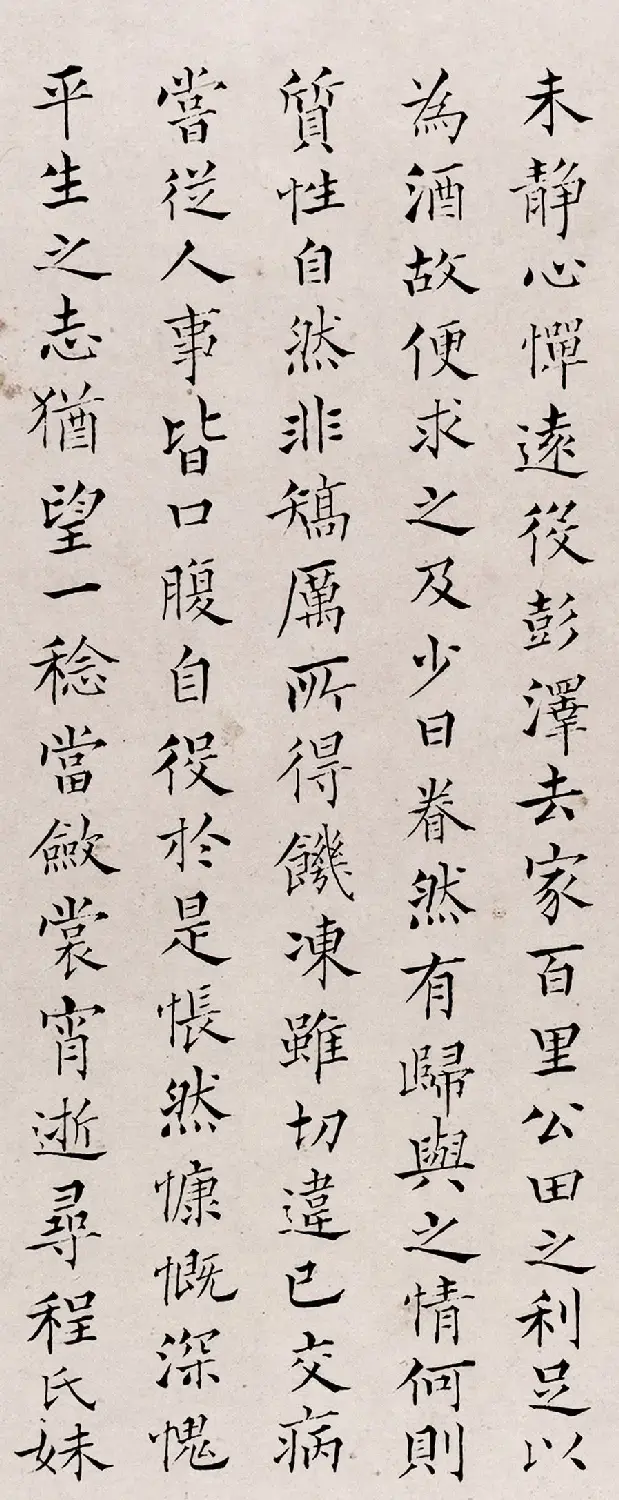 未静心憚遠役彭澤去家百里公田之利足以
為酒故便求之及少日眷然有歸與之情何則
質性自然非矯厲所得饑凍雖切違己交病
嘗從人事皆口腹自役於是悵然慷慨深愧
平生之志猶望一稔當斂裳宵逝尋程氏妹